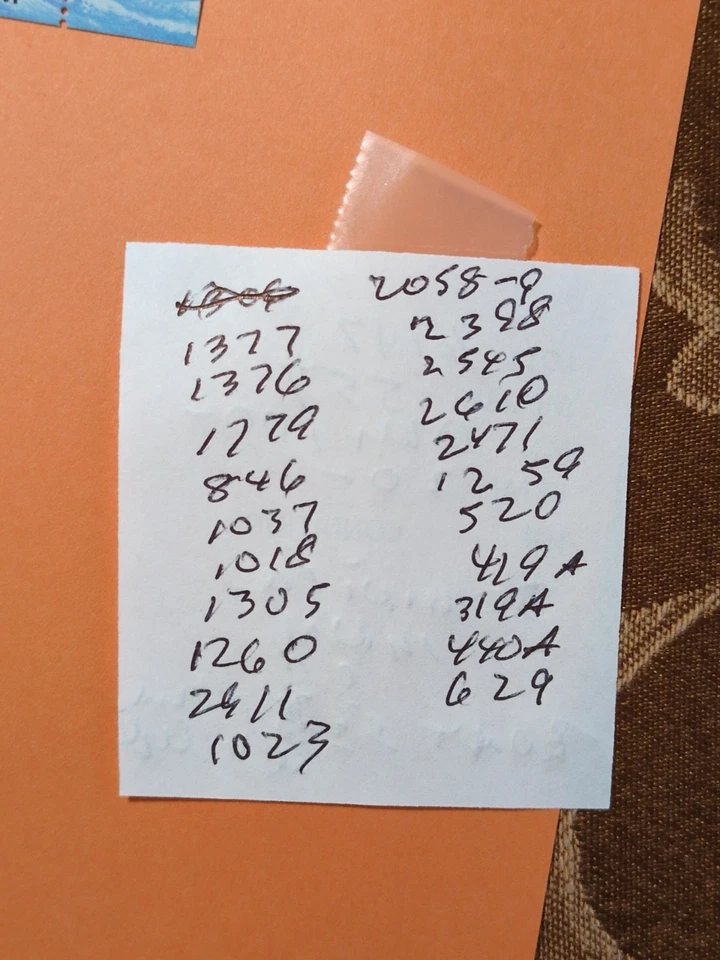 1377
1376
1279
846
1037
1018
1305
1260
2411
1023
2058-9
2398
2545
2610
2471
12 59
520
419 A
319A
440A
629